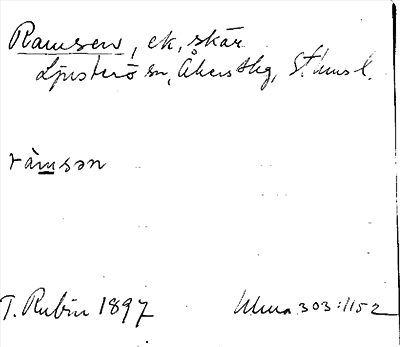 Ramsen, ek, skär
Ljusterö sn, Åkers skg, St:lms l.
ràmsən
T. Rubin 1897 Ulma 303:1152